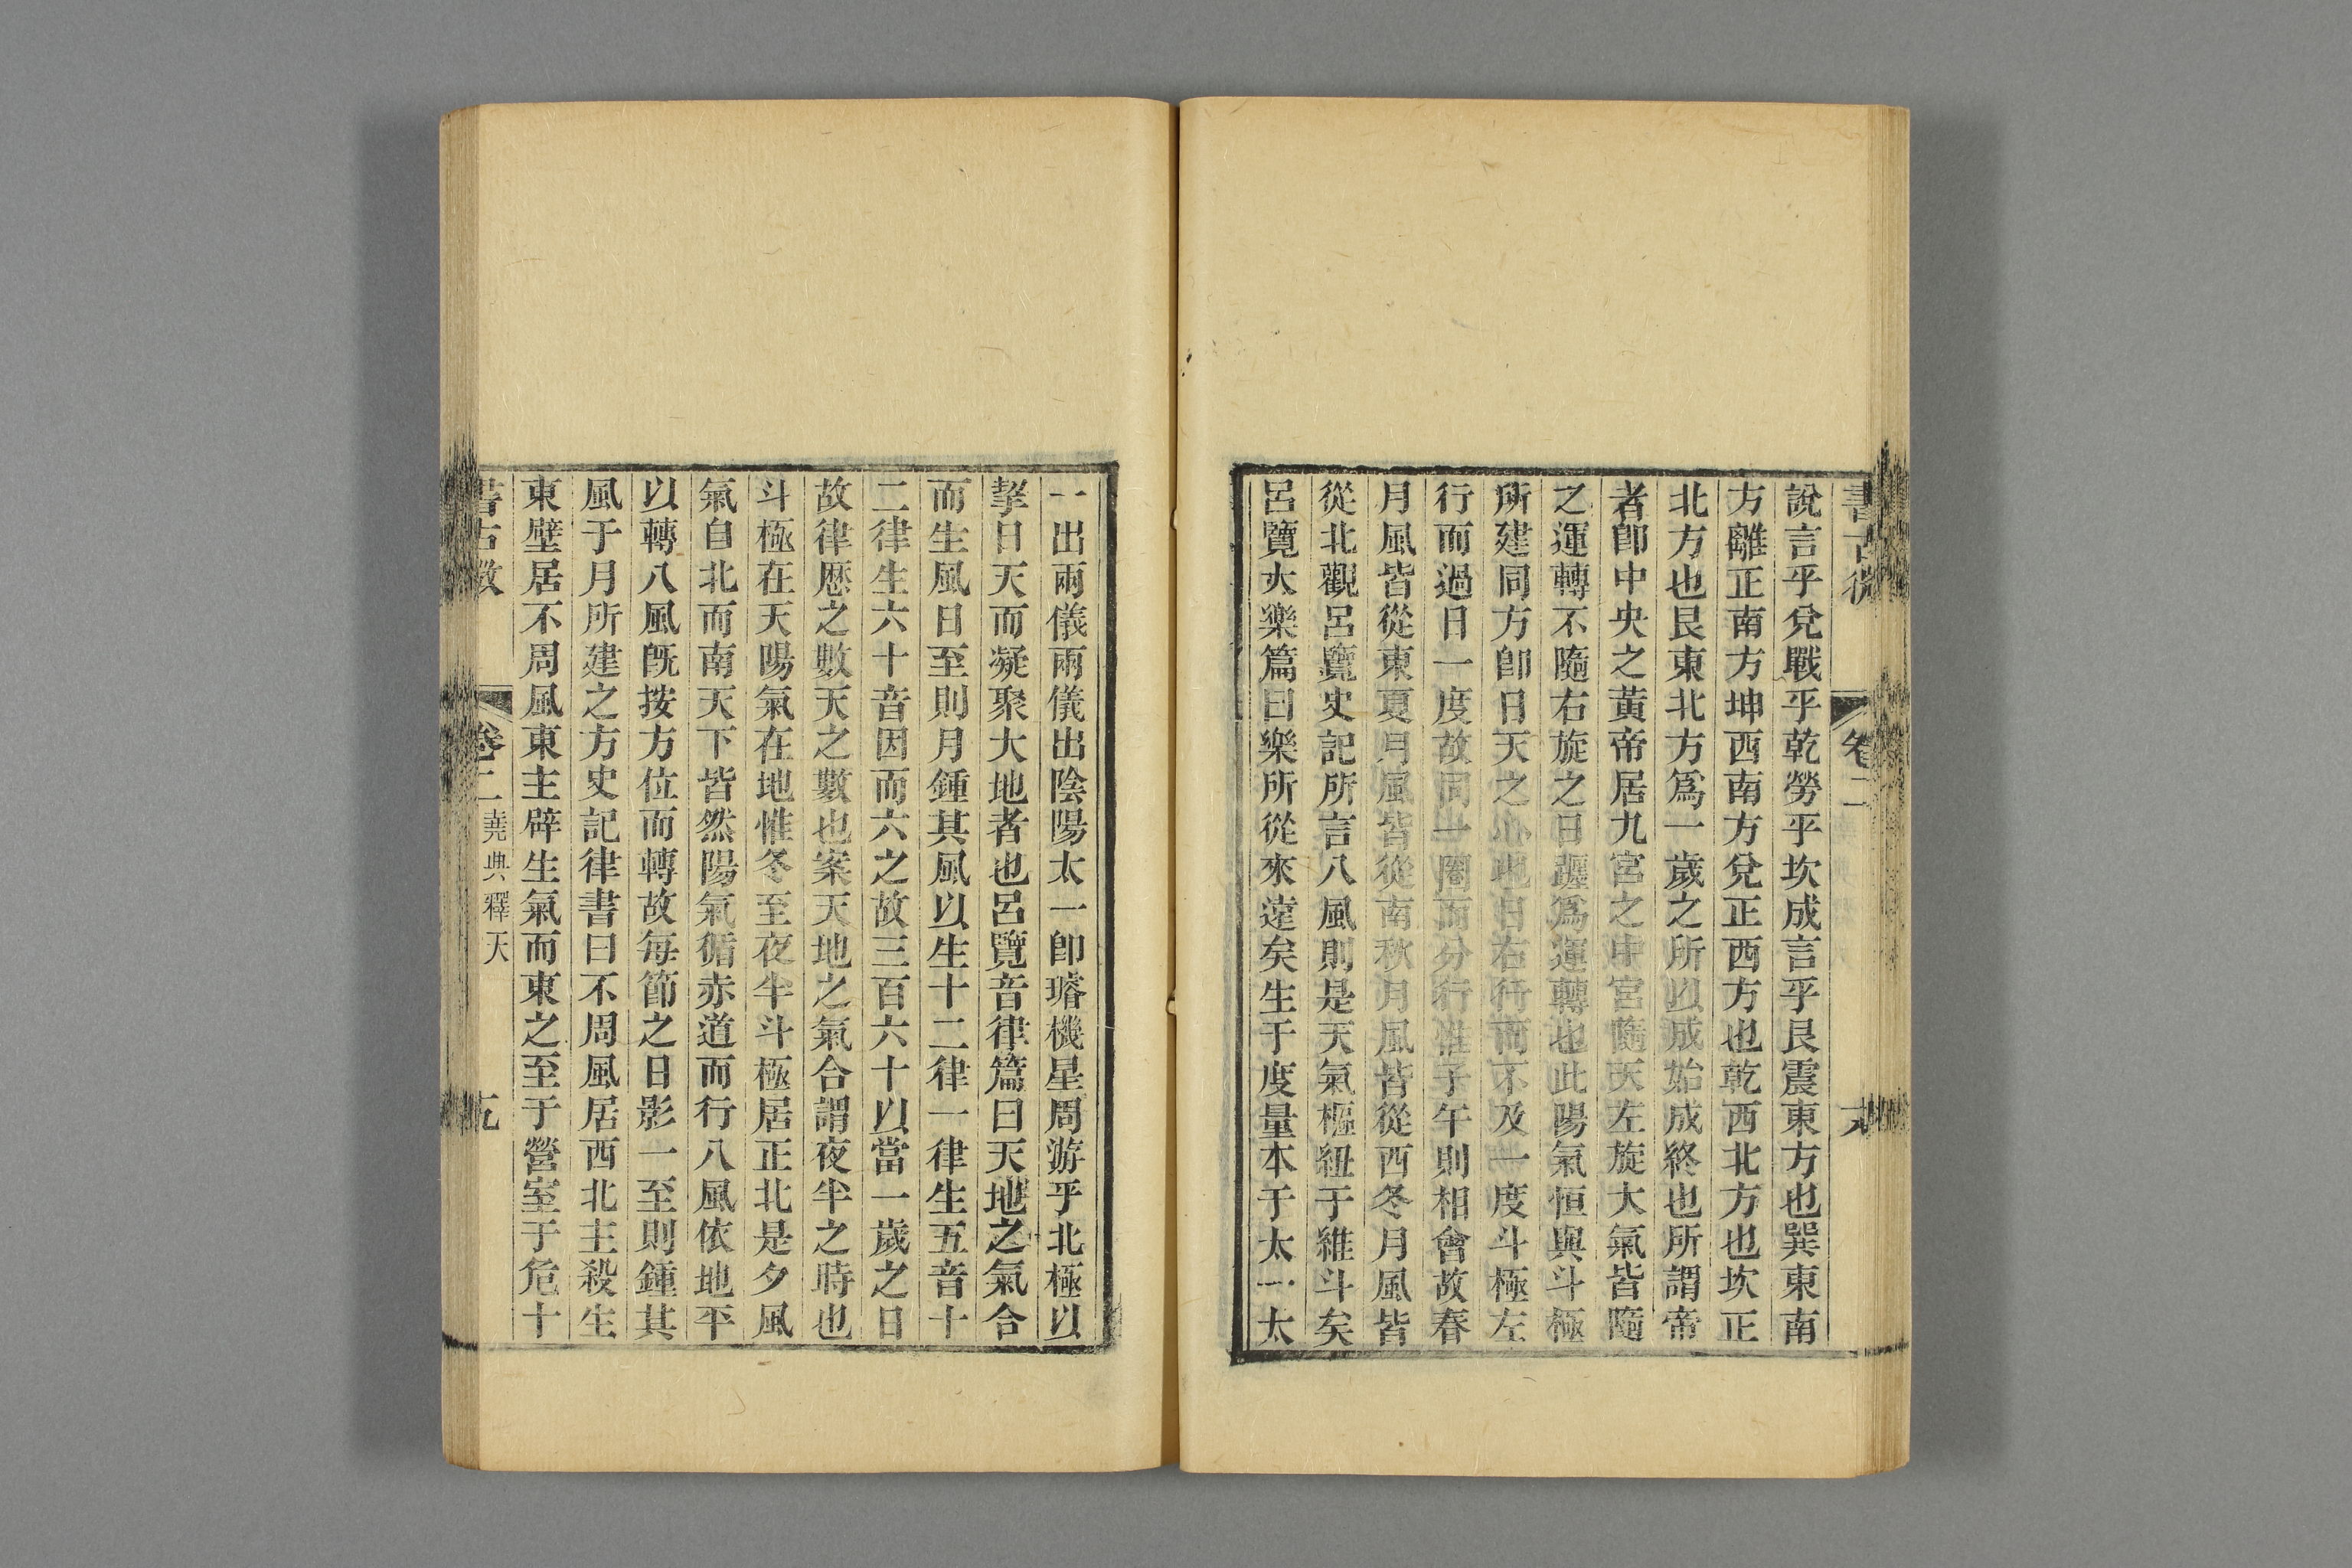 書古微
卷二
說言乎兌戰乎乾勞乎坎成言乎艮震東方也巽東南
方離正南方坤西南方兌正西方也乾西北方也坎正
北方也艮東北方爲一歲之所以成始成終也所謂帝
者卽中央之黃帝居九宮之中宮隨天左旋大氣皆隨
之運轉不隨右旋之日躔爲運轉也此陽氣恒與斗極
所建同方卽日天之也日右行而不及一度斗極左
行而過日一度故同一周而分行惟子午則相會故春
月風皆從東夏月風皆從南秋月風皆從西冬月風皆
從北觀呂覽史記所言八風則是天氣樞紐于維斗矣
呂覽大樂篇曰樂所從來遠矣生于度量本于太一太
一出兩儀兩儀出陰陽太一卽璿機星周游乎北極以
挈日天而凝聚大地者也呂覽音律篇曰天地之氣合
而生風日至則月鍾其風以生十二律一律生五音十
二律生六十音因而六之故三百六十以當一歲之日
故律歷之數天之數也案天地之氣合謂夜半之時也
斗極在天陽氣在地惟冬至夜半斗極居正北是夕風
氣自北而南天下皆然陽氣循赤道而行八風依地平
以轉八風旣按方位而轉故每節之日影一至則鍾其
風于月所建之方史記律書曰不周風居西北主殺生
東壁居不周風東主辟生氣而東之至于營室于危十
書古微
卷二 堯典釋天